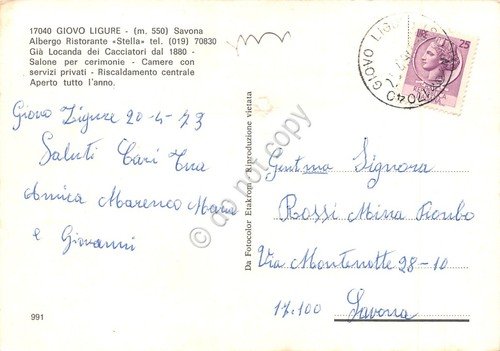 17040 GIOVO LIGURE - (m. 550) Savona
Albergo Ristorante «Stella» tel. (019) 70830
Già Locanda dei Cacciatori dal 1880 -
Salone per cerimonie - Camere con
servizi privati - Riscaldamento centrale
Aperto tutto l'anno.
Giovo Ligure 20-4-73
Saluti Cari Tua
Amica Marenco Maria
e Giovanni
991
Da Fotocolor Etakrom - Riproduzione vietata
25
17040 GIOVO LIGURE
Gentma Signora
Rossi Mina
Via Montenotte 28-10
17100 Savona
do not copy